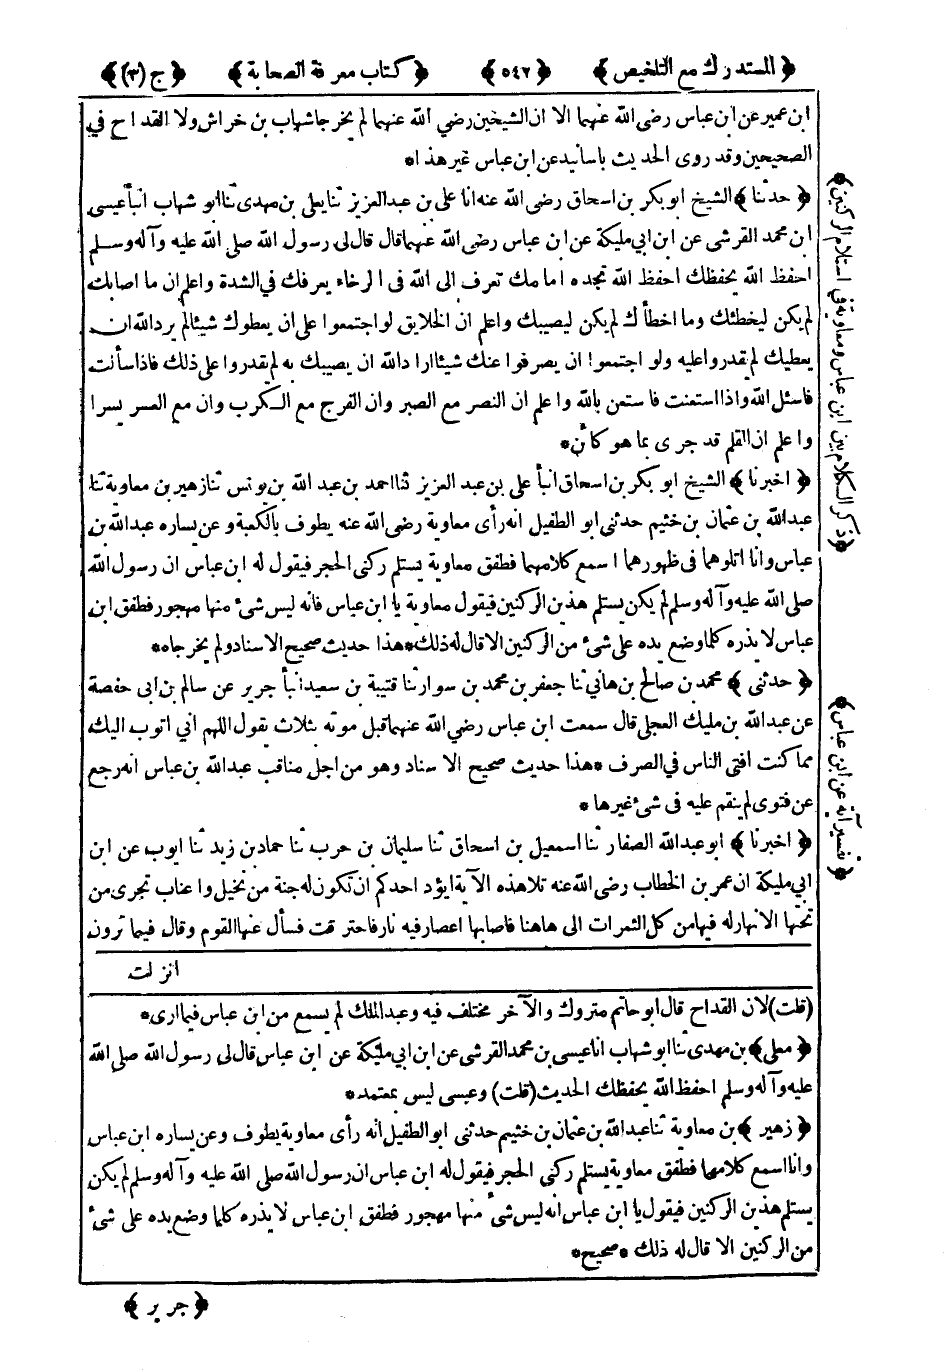 ﴿ المستدرك مع التلخيص ﴾ ﴿ ٥٤٢ ﴾ ﴿ كتاب معرفة الصحابة ﴾ ﴿ ج (٣) ﴾
ابن عمير عن ابن عباس رضى الله عنهما الا ان الشيخين رضي الله عنهما لم يخرجا شهاب بن خراش ولا القداح في
الصحيحين وقد روى الحديث باسانيد عن ابن عباس غير هذا *
﴿ حدثنا ﴾ الشيخ ابو بكر بن اسحاق رضى الله عنه انا على بن عبد العزيز ثنا يعلى بن مهدى ثنا ابو شهاب انبأ عيسى
ابن محمد القرشى عن ابن ابي مليكة عن ابن عباس رضى الله عنهما قال قال لى رسول الله صلى الله عليه وآله وسلم
احفظ الله يحفظك احفظ الله تجده امامك تعرف الى الله فى الرخاء يعرفك في الشدة واعلم ان ما اصابك
لم يكن ليخطئك وما اخطأك لم يكن ليصيبك واعلم ان الخلايق لو اجتمعوا على ان يعطوك شيئا لم يرد الله ان
يعطيك لم يقدروا عليه ولو اجتمعوا ان يصرفوا عنك شيئا اراد الله ان يصيبك به لم يقدروا على ذلك فاذا سألت
فاسئل الله واذا استعنت فاستعن بالله واعلم ان النصر مع الصبر وان الفرج مع الكرب وان مع العسر يسرا
واعلم ان القلم قد جرى بما هو كائن *
﴿ اخبرنا ﴾ الشيخ ابو بكر بن اسحاق انبأ على بن عبد العزيز ثنا احمد بن عبد الله بن يونس ثنا زهير بن معاوية ثنا
عبد الله بن عثمان بن خثيم حدثني ابو الطفيل انه رأى معاوية رضى الله عنه يطوف بالكعبة وعن يساره عبد الله بن
عباس وانا اتلوهما فى ظهورهما اسمع كلامهما فطفق معاوية يستلم ركنى الحجر فيقول له ابن عباس ان رسول الله
صلى الله عليه وآله وسلم لم يكن يستلم هذين الركنين فيقول معاوية يا ابن عباس فانه ليس شئ منها مهجور فطفق ابن
عباس لا يذره كلما وضع يده على شئ من الركنين الا قال له ذلك * هذا حديث صحيح الاسناد ولم يخرجاه *
﴿ حدثنى ﴾ محمد بن صالح بن هاني ثنا جعفر بن محمد بن سوار ثنا قتيبة بن سعيد انبأ جرير عن سالم بن ابى حفصة
عن عبد الله بن مليك العجلى قال سمعت ابن عباس رضي الله عنهما قبل موته بثلاث يقول اللهم اني اتوب اليك
مما كنت افتى الناس في الصرف * هذا حديث صحيح الاسناد وهو من اجل مناقب عبد الله بن عباس انه رجع
عن فتوى لم ينقم عليه فى شئ غيرها *
﴿ اخبرنا ﴾ ابو عبد الله الصفار ثنا اسمعيل بن اسحاق ثنا سليمان بن حرب ثنا حماد بن زيد ثنا ايوب عن ابن
ابي مليكة ان عمر بن الخطاب رضى الله عنه تلا هذه الآية ايؤد احدكم ان تكون له جنة من نخيل واعناب تجرى من
تحتها الانهار له فيها من كل الثمرات الى هاهنا فاصابها اعصار فيه نار فاحترقت فسأل عنها القوم وقال فيما ترون
انزلت
(قلت) لان القداح قال ابو حاتم متروك والآخر مختلف فيه وعبد الملك لم يسمع من ابن عباس فيما ارى *
﴿ معلى ﴾ بن مهدى ثنا ابو شهاب انا عيسى بن محمد القرشى عن ابن ابي مليكة عن ابن عباس قال لى رسول الله صلى الله
عليه وآله وسلم احفظ الله يحفظك الحديث (قلت) وعيسى ليس بمعتمد *
﴿ زهير ﴾ بن معاوية ثنا عبد الله بن عثمان بن خثيم حدثنى ابو الطفيل انه رأى معاوية يطوف وعن يساره ابن عباس
وانا اسمع كلامهما فطفق معاوية يستلم ركنى الحجر فيقول له ابن عباس ان رسول الله صلى الله عليه وآله وسلم لم يكن
يستلم هذين الركنين فيقول يا ابن عباس انه ليس شئ منها مهجور فطفق ابن عباس لا يذره كلما وضع يده على شئ
من الركنين الا قال له ذلك * صحيح *
﴿ جرير ﴾
﴿ ذكر الكلام بين ابن عباس ومعاوية في استلام الركنين ﴾
﴿ تفسير آية عن ابن عباس ﴾